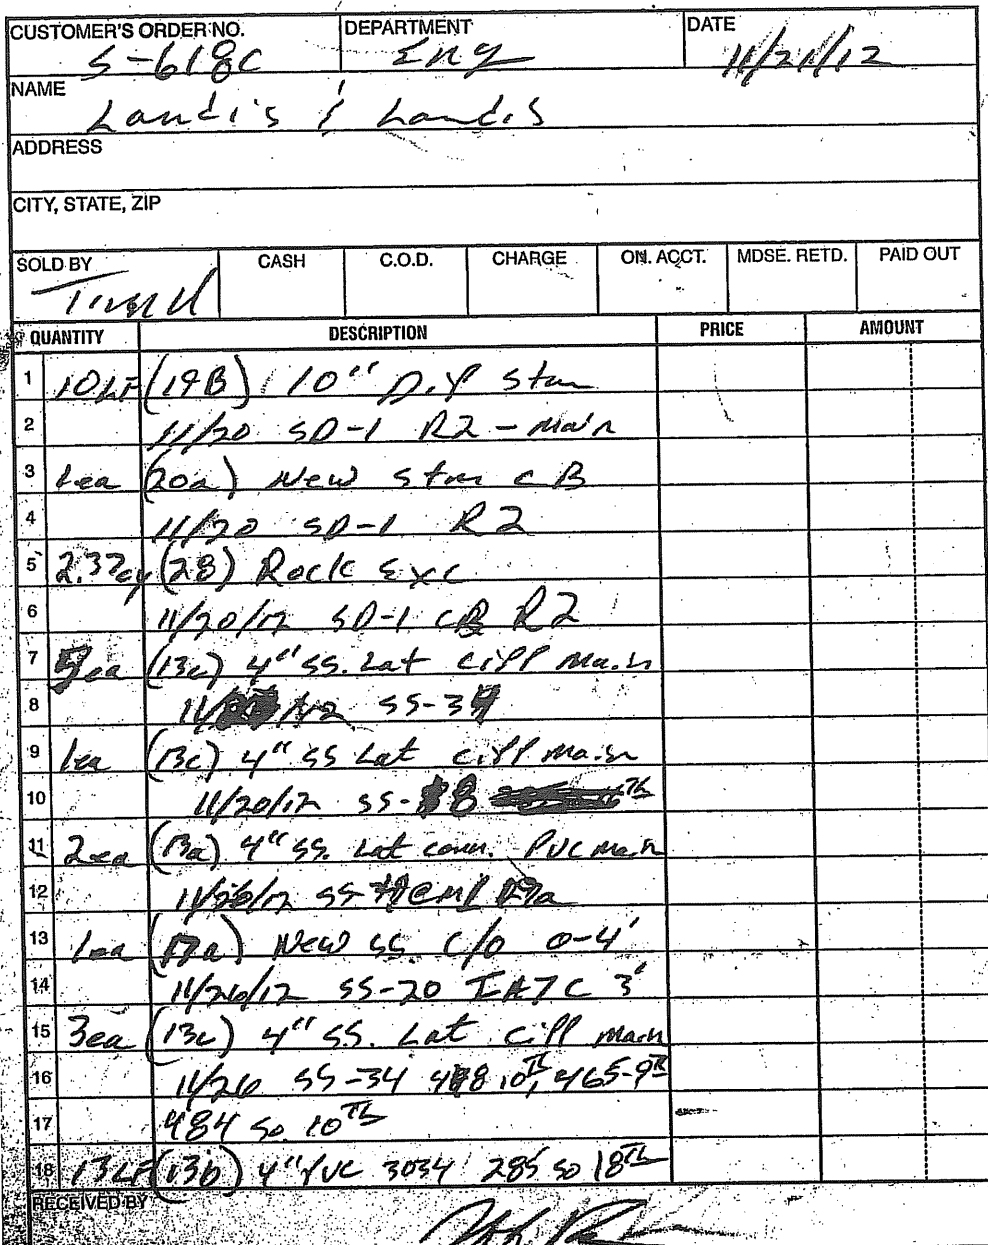 CUSTOMER'S ORDER NO. DEPARTMENT DATE
S-618C Eng 11/21/12
NAME
Landis & Landis
ADDRESS
CITY, STATE, ZIP
SOLD BY CASH C.O.D. CHARGE ON. ACCT. MDSE. RETD. PAID OUT
QUANTITY DESCRIPTION PRICE AMOUNT
1 10LF (19B) 10" D.I.P Stm
2 11/20 SD-1 R2 - Main
3 1ea (20a) New Stm CB
4 11/20 SD-1 R2
5 2.37cy (28) Rock Exc
6 11/20/12 SD-1 CB R2
7 5ea (13c) 4" SS. Lat CIPP Main
8 SS-34
9 1ea (13c) 4" SS Lat CIPP Main
10 11/20/12 SS-8
11 2ea (13a) 4" SS. Lat conn. PVC Main
12 11/20/12 SS-
13 1ea (17a) New SS. C/O 0-4'
14 11/26/12 SS-20 3'
15 3ea (13c) 4" SS. Lat CIPP Main
16 11/26 SS-34 10th, 465-9th
17 484 So. 10th
18 13LF (13b) 4" PVC 3034 285 So 18th
RECEIVED BY